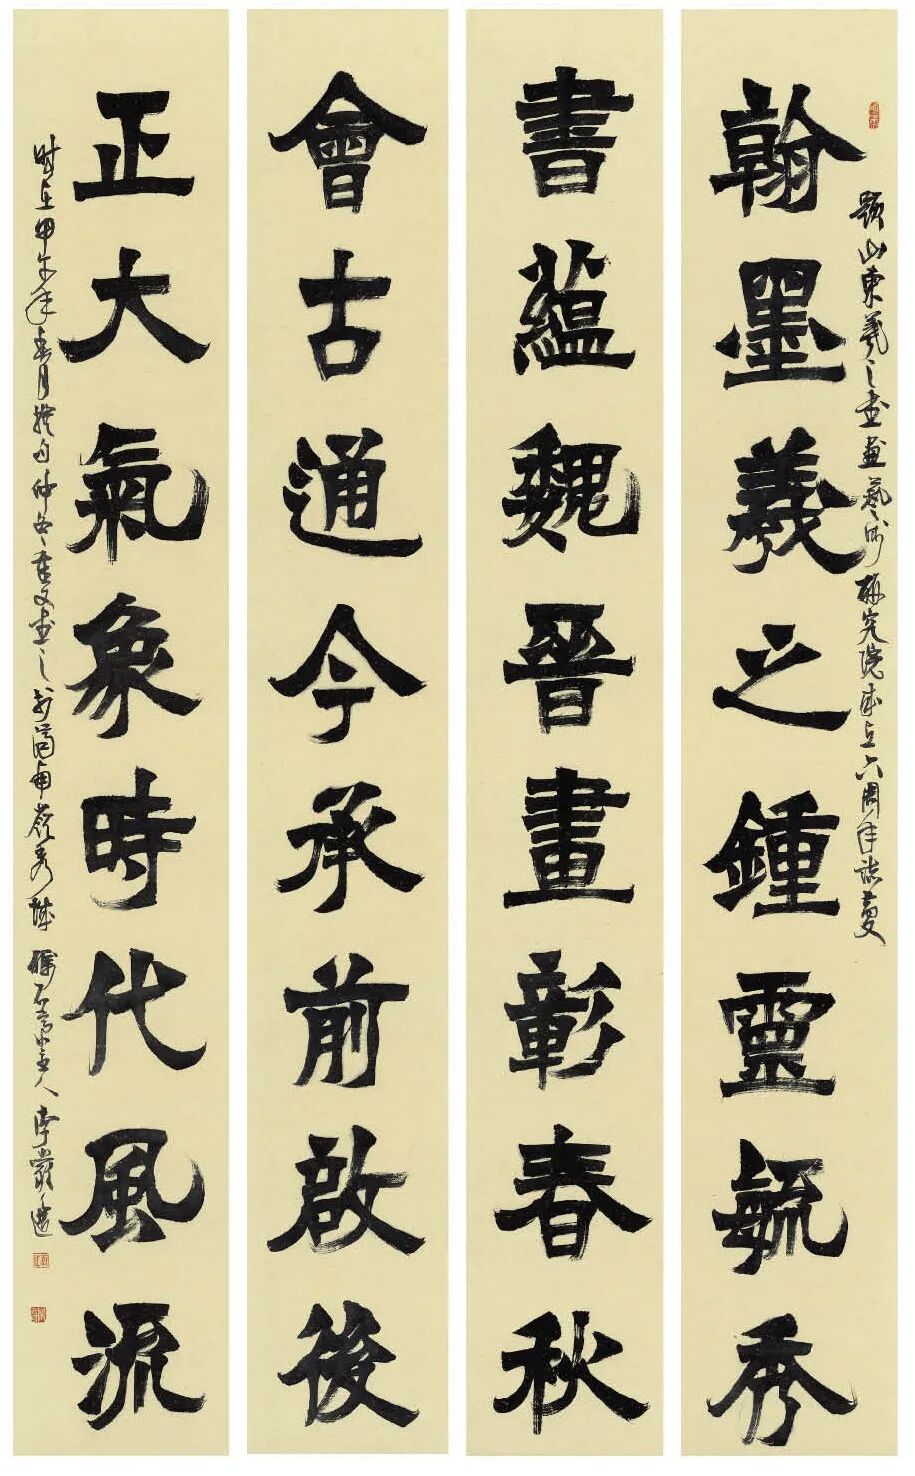 題山東羲之書畫藝術研究院成立六周年誌慶
翰墨羲之鍾靈毓秀
書蘊魏晉畫彰春秋
會古通今承前啟後
正大氣象時代風流
时在甲午年春月撰句仲冬書之於主人李